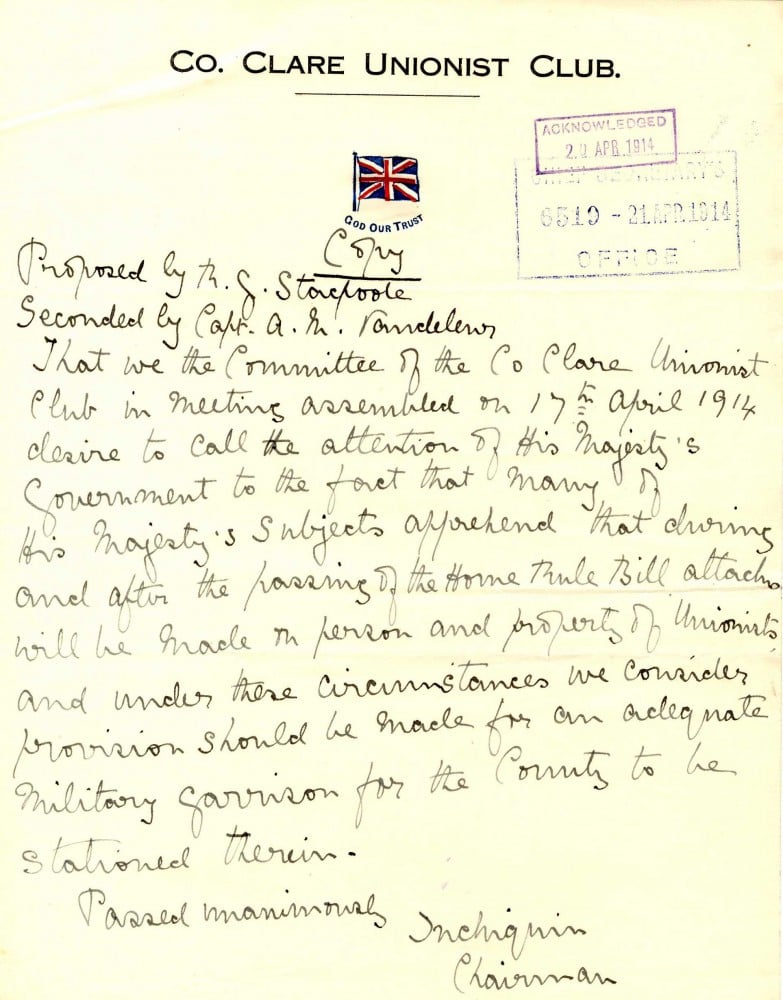 Co. Clare Unionist Club.
ACKNOWLEDGED
APR. 1914
CHIEF SECRETARY'S
6519 - 21 APR. 1914
OFFICE
GOD OUR TRUST
Copy
Proposed by R. G. Stacpoole
Seconded by Capt. A. M. Vandeleur
That we the Committee of the Co Clare Unionist
Club in meeting assembled on 17th April 1914
desire to call the attention of His Majesty's
Government to the fact that many of
His Majesty's Subjects apprehend that during
and after the passing of the Home Rule Bill attacks
will be made on person and property of Unionists
and under these circumstances we consider
provision should be made for an adequate
Military garrison for the County to be
stationed therein.
Passed unanimously
Inchiquin
Chairman